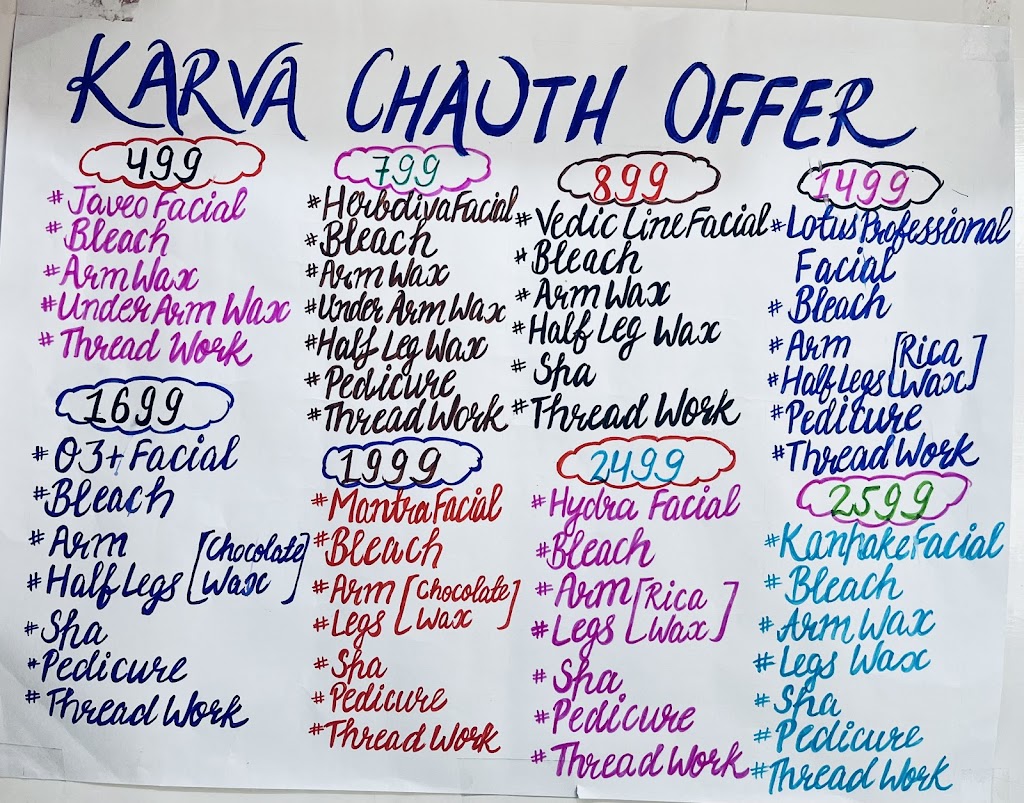 KARVA CHAUTH OFFER
499
# Javeo Facial
# Bleach
# Arm Wax
# Under Arm Wax
# Thread Work
799
# Herbdiva Facial
# Bleach
# Arm Wax
# Under Arm Wax
# Half Leg Wax
# Pedicure
# Thread Work
899
# Vedic Line Facial
# Bleach
# Arm Wax
# Half Leg Wax
# Spa
# Thread Work
1499
# Lotus Professional
Facial
# Bleach
# Arm [Rica
# Half Legs Wax]
# Pedicure
# Thread Work
1699
# O3+ Facial
# Bleach
# Arm [Chocolate
# Half Legs Wax]
# Spa
# Pedicure
# Thread Work
1999
# Mantra Facial
# Bleach
# Arm [Chocolate
# Legs Wax]
# Spa
# Pedicure
# Thread Work
2499
# Hydra Facial
# Bleach
# Arm [Rica
# Legs Wax]
# Spa
# Pedicure
# Thread Work
2599
# Kanpake Facial
# Bleach
# Arm Wax
# Legs Wax
# Spa
# Pedicure
# Thread Work